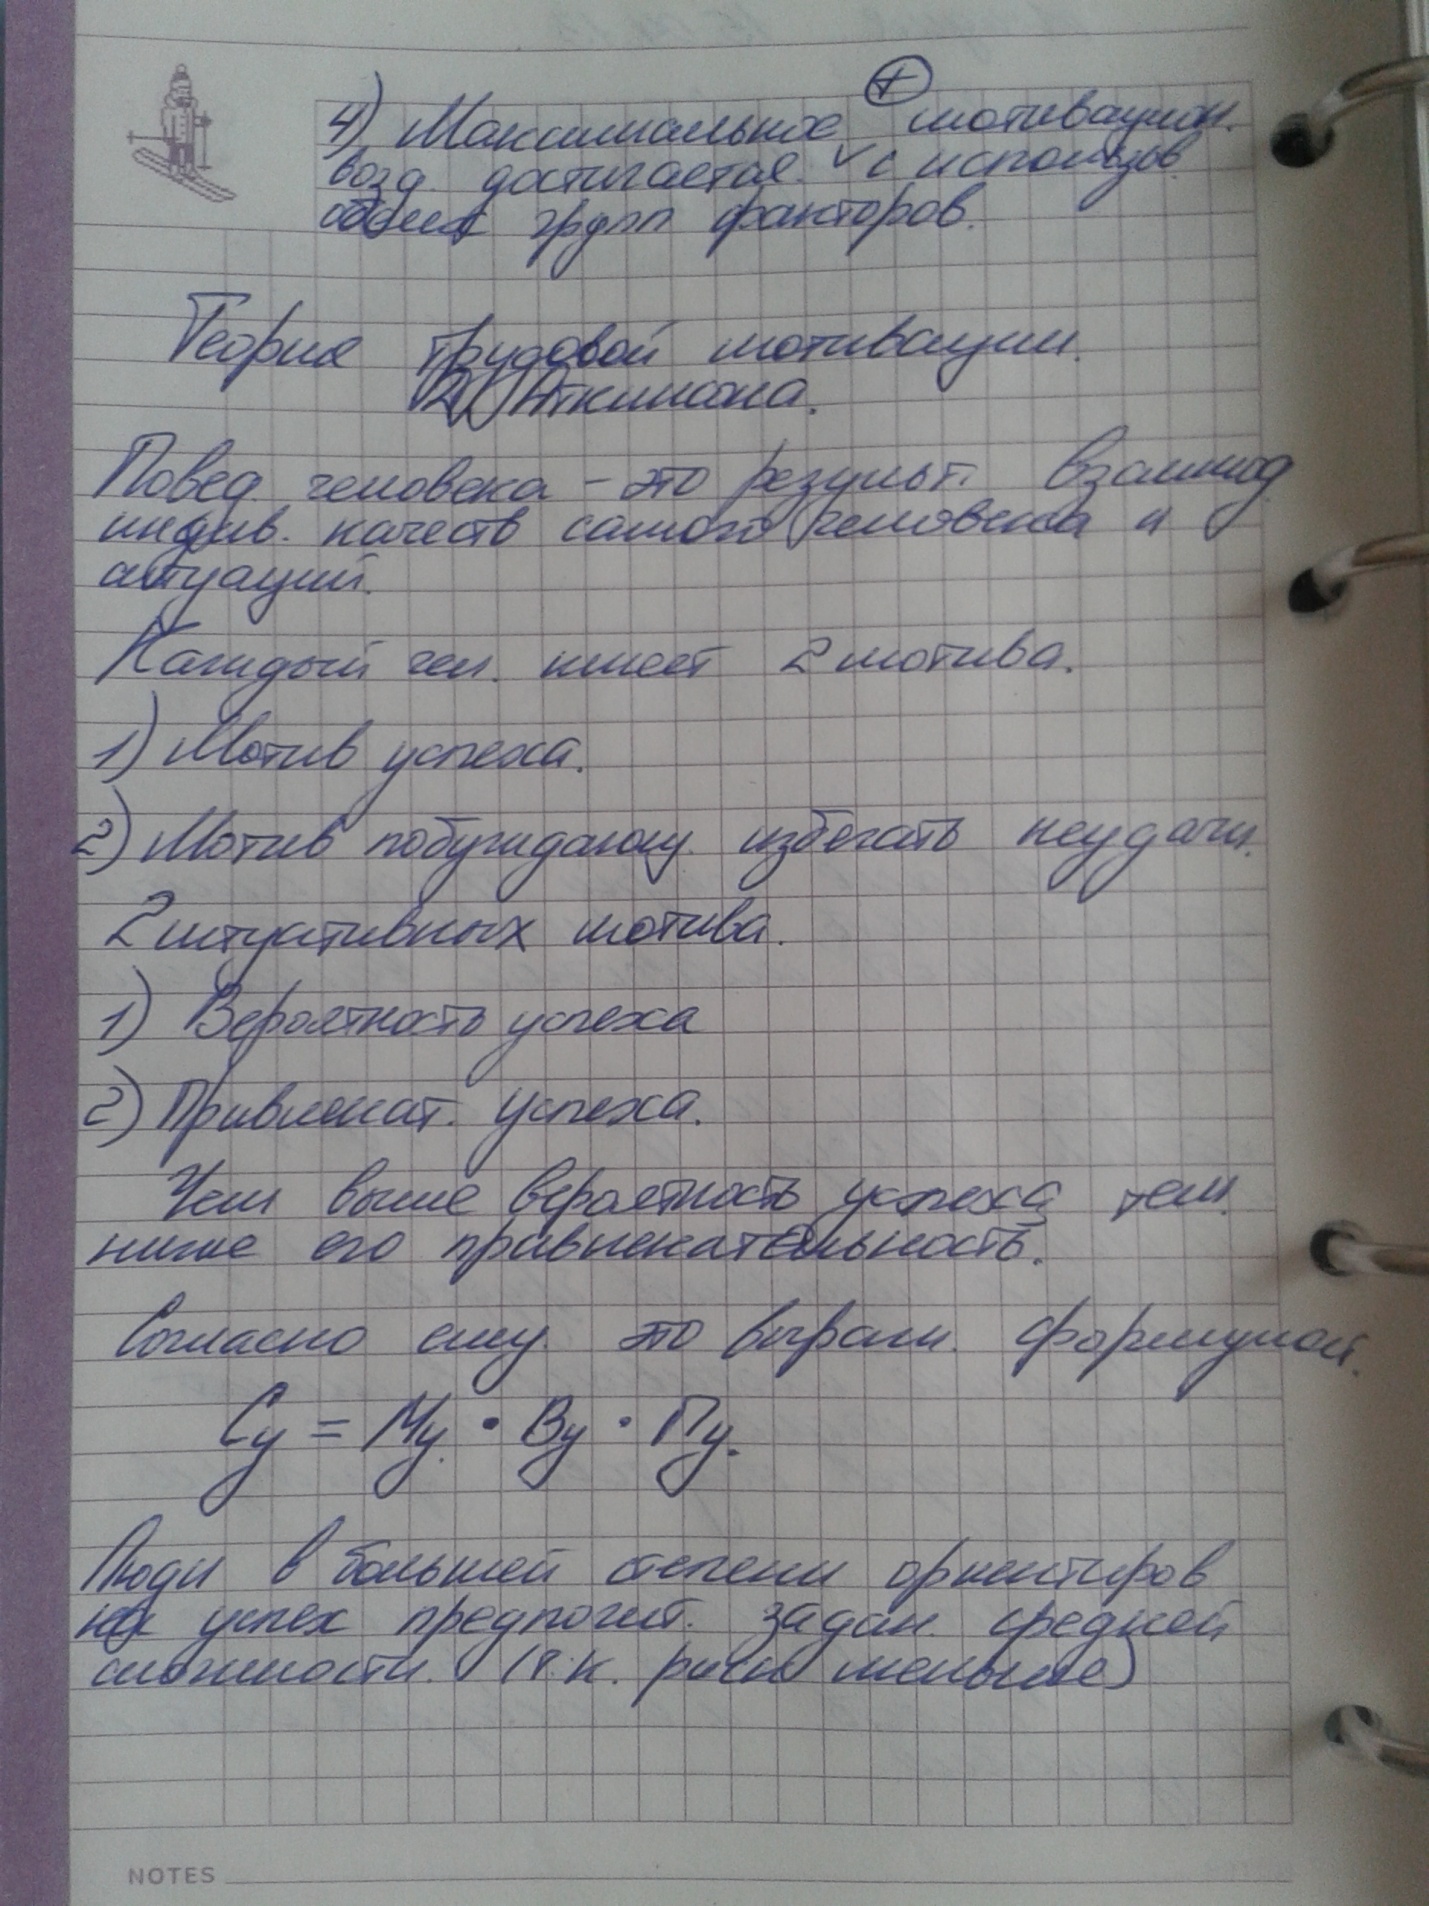 4) Максимальное ⊕ мотивацион.
возд. достигается ∨ с использов.
обеих групп факторов.
Теория трудовой мотивации.
Аткинсона.
Повед. человека – это результ. взаимод.
индив. качеств самого человека и
ситуаций.
Каждый чел. имеет 2 мотива.
1) Мотив успеха.
2) Мотив побуждающ. избегать неудачи.
2 ситуативных мотива.
1) Вероятность успеха
2) Привлекат. успеха.
Чем выше вероятность успеха тем
ниже его привлекательность.
Согласно ему это выраж. формулой.
Су = Му · Ву · Пу.
Люди в большей степени ориентиров
на успех предпочит. задан. средней
сложности. (т.к. риск меньше)
NOTES